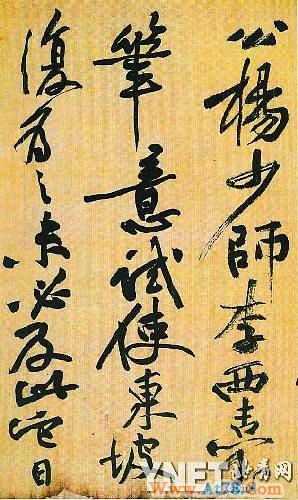 公楊少師李西臺
筆意試使東坡
復為之未必及此它日
YNET 北青网